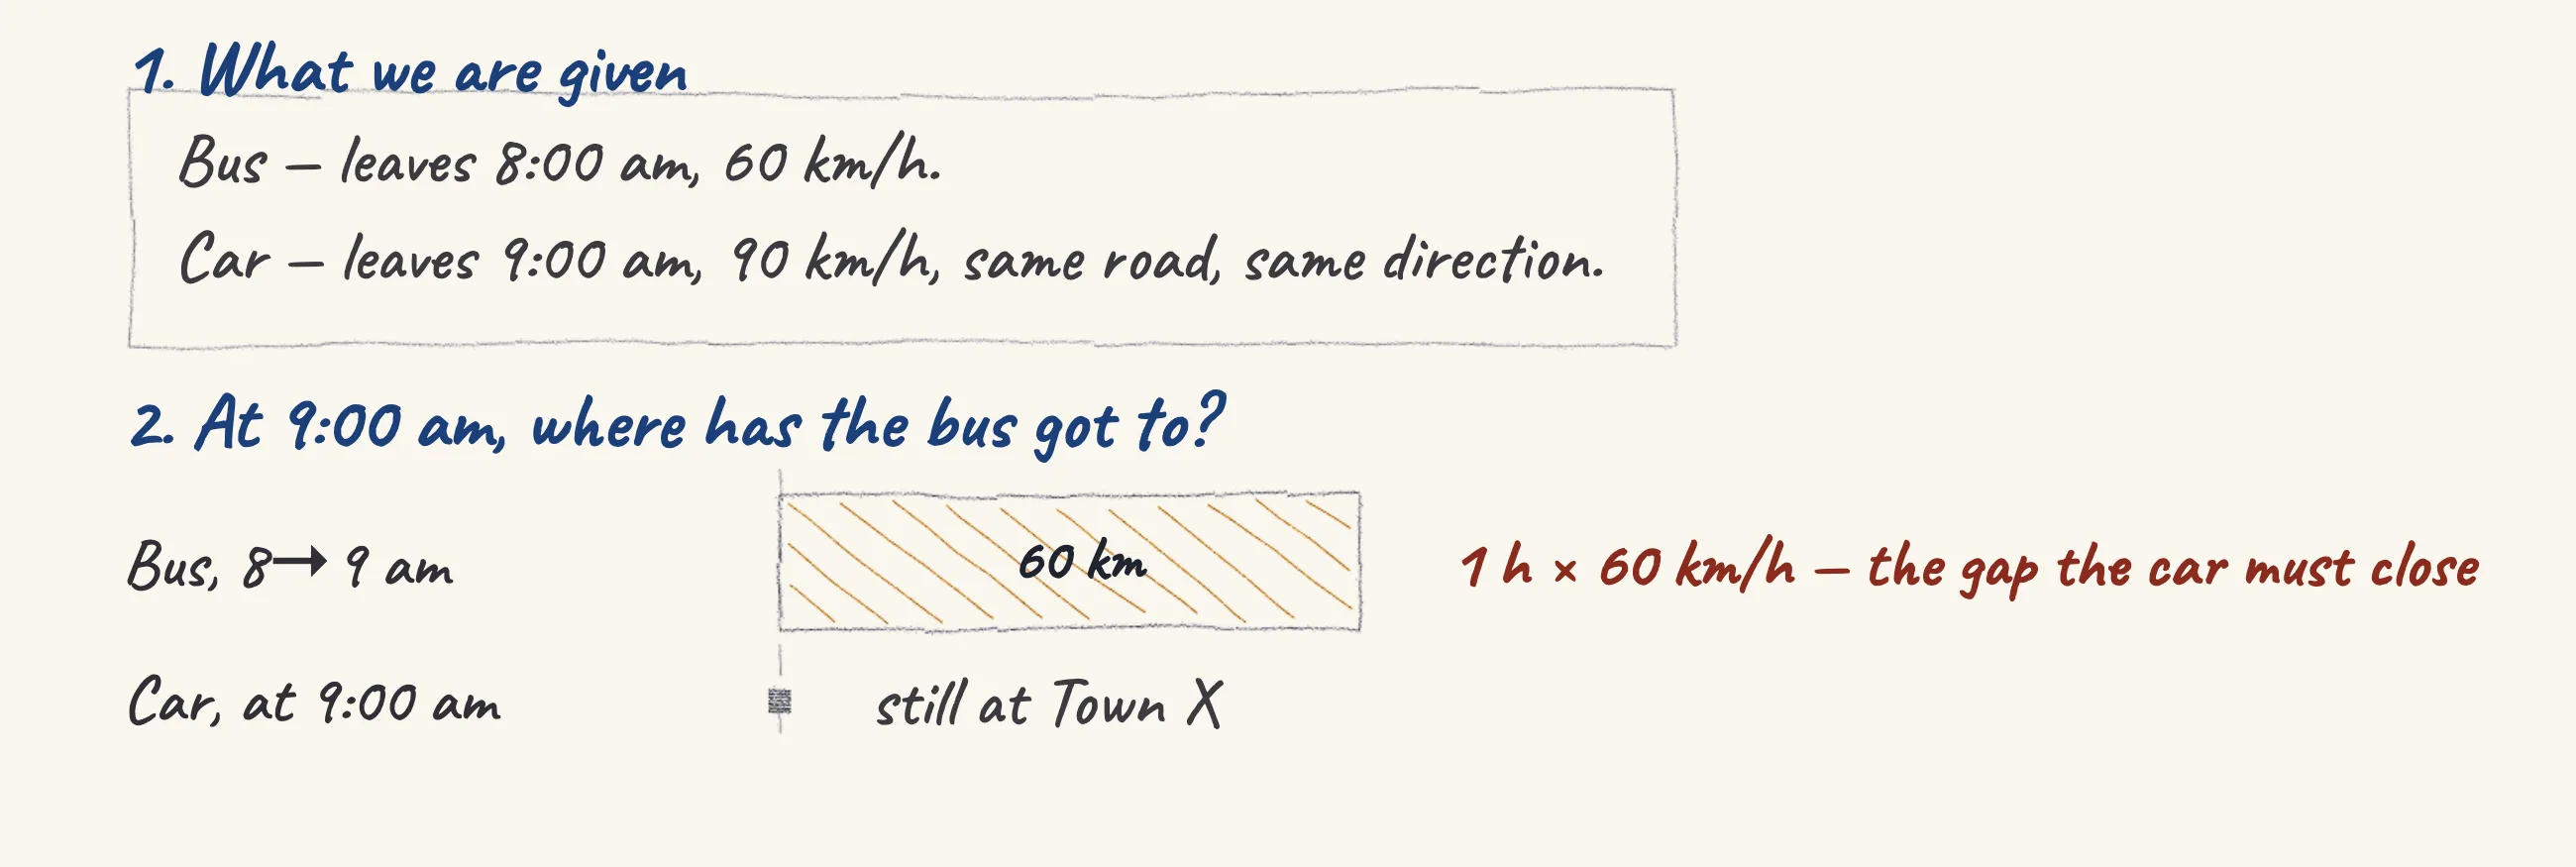 1. What we are given
Bus – leaves 8:00 am, 60 km/h.
Car – leaves 9:00 am, 90 km/h, same road, same direction.
2. At 9:00 am, where has the bus got to?
Bus, 8→ 9 am
60 km
1 h × 60 km/h – the gap the car must close
Car, at 9:00 am
still at Town X